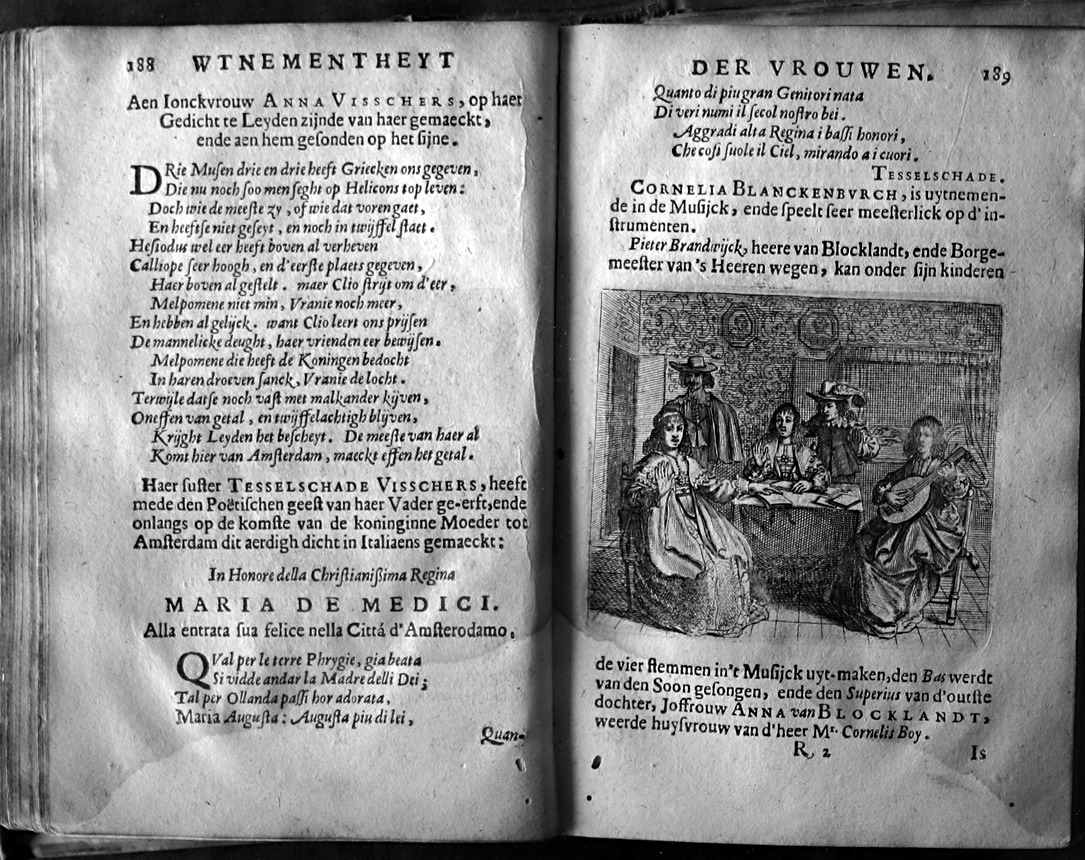 188 WTNEMENTHEYT
Aen Ionckvrouw ANNA VISSCHERS, op haer
Gedicht te Leyden zijnde van haer gemaeckt,
ende aen hem gesonden op het sijne.
DRie Musen drie en drie heeft Griecken ons gegeven,
Die nu noch soo men seght op Helicons top leven:
Doch wie de meeste zy, of wie dat voren gaet,
En heeftse niet geseyt, en noch in twijffel staet.
Hesiodus wel eer heeft boven al verheven
Calliope seer hoogh, en d'eerste plaets gegeven,
Haer boven al gestelt. maer Clio strijt om d'eer,
Melpomene niet min, Vranie noch meer,
En hebben al gelijck. want Clio leert ons prijsen
De mannelicke deught, haer vrienden eer bewijsen.
Melpomene die heeft de Koningen bedocht
In haren droeven sanck, Vranie de locht.
Terwijle datse noch vast met malkander kijven,
Oneffen van getal, en twijffelachtigh blijven,
Krijght Leyden het bescheyt. De meeste van haer al
Komt hier van Amsterdam, maeckt effen het getal.
Haer suster TESSELSCHADE VISSCHERS, heeft
mede den Poëtischen geest van haer Vader ge-erft, ende
onlangs op de komste van de koninginne Moeder tot
Amsterdam dit aerdigh dicht in Italiaens gemaeckt:
In Honore della Christianißima Regina
MARIA DE MEDICI.
Alla entrata sua felice nella Cittá d'Amsterodamo,
QVal per le terre Phrygie, gia beata
Si vidde andar la Madre delli Dei;
Tal per Ollanda passi hor adorata,
Maria Augusta: Augusta piu di lei,
Quan-
DER VROUWEN. 189
Quanto di piu gran Genitori nata
Di veri numi il secol nostro bei.
Aggradi alta Regina i bassi honori,
Che cosi suole il Ciel, mirando a i cuori.
TESSELSCHADE.
CORNELIA BLANCKENBVRCH, is uytnemen-
de in de Musijck, ende speelt seer meesterlick op d'in-
strumenten.
Pieter Brandwijck, heere van Blocklandt, ende Borge-
meester van 's Heeren wegen, kan onder sijn kinderen
de vier stemmen in't Musijck uyt-maken, den Bas werdt
van den Soon gesongen, ende den Superius van d'outste
dochter, Joffrouw ANNA van BLOCKLANDT,
weerde huysvrouw van d'heer Mr. Cornelis Boy.
R 2 Is